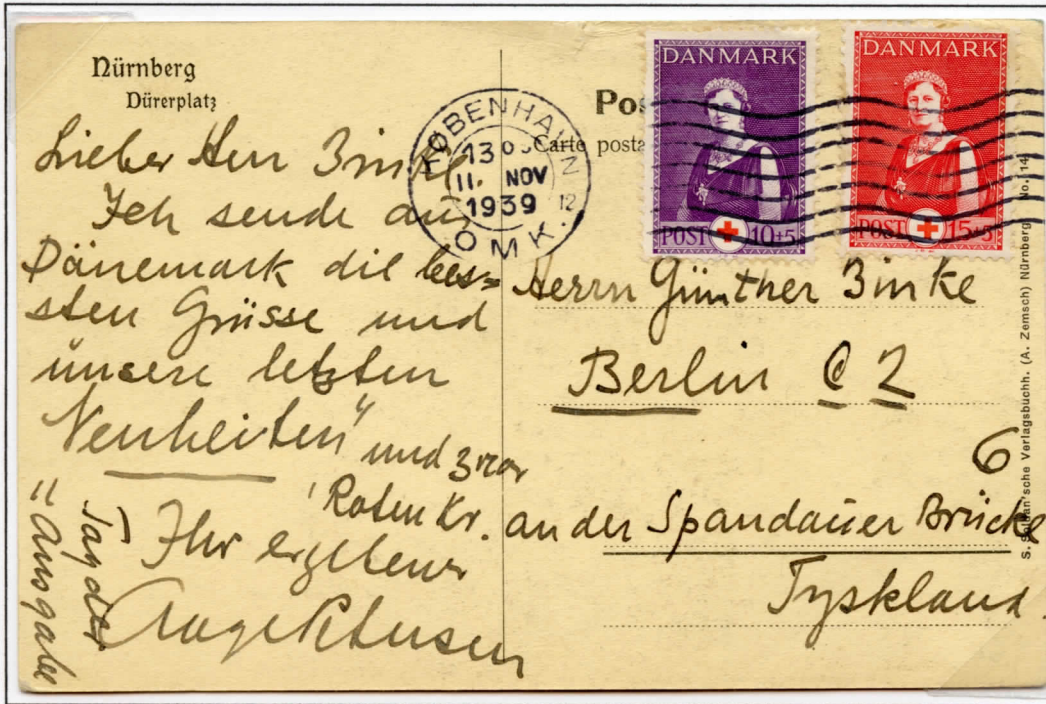 Nürnberg
Dürerplatz
Lieber Herr Binke
Ich sende aus
Dänemark die bes=
sten Grüsse und
unsere letzten
Neuheiten" und zwar
Roten Kr.
Ihr ergebener
"Tag der
Ausgabe
KØBENHAVN
OMK.
13
11. NOV
1939
12
Pos
Carte posta
DANMARK
POST 10+5
DANMARK
POST 15+5
Herrn Günther Binke
Berlin C 2
6
an der Spandauer Brücke
Tyskland.
(A. Zemsch) Nürnberg No. 14